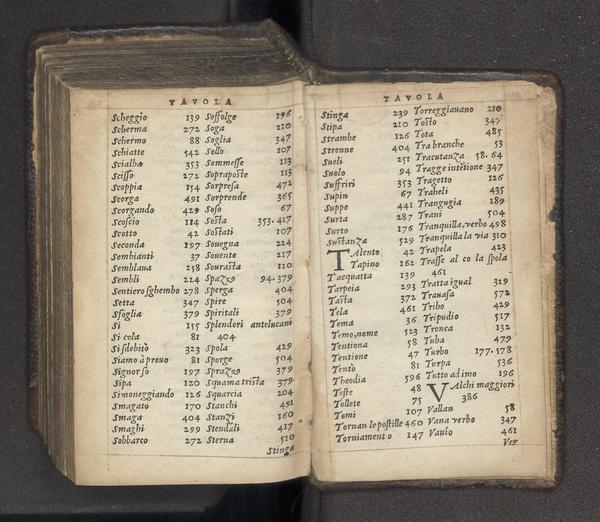 TAVOLA
Scheggio 139
Scherma 272
Schermo 88
Schiatte 542
Scialba 353
Scisso 272
Scoppia 154
Scorga 491
Scorgando 429
Scoscio 114
Scotto 42
Seconda 197
Sembianti 37
Semblaua 258
Sembli 224
Sentiero sghembo 278
Setta 347
Sfoglia 379
Si 155
Si cola 81
Si sdebitò 323
Siamo à prouo 81
Signor sò 197
Sipa 120
Simoneggiando 126
Smagato 170
Smaga 404
Smaghi 299
Sobbarco 272
Soffolge 196
Soga 210
Soglia 347
Sollo 107
Sommesse 113
Sopraposte 113
Sorpresa 472
Sorprende 365
Soso 67
Sosta 353.417
Sostati 107
Souegna 224
Souente 217
Sourasta 120
Spazzo 94.379
Sperga 404
Spire 504
Spiritali 379
Splendori antelucani
404
Spola 429
Sporge 504
Sprazzo 379
Squama trista 379
Squarcia 204
Stanchi 491
Stanzi 160
Stendali 417
Sterna 510
Stinga
TAVOLA
Stinga 239
Stipa 210
Strambe 126
Strenne 404
Sueli 251
Suolo 94
Suffriri 353
Supin 67
Suppe 441
Surta 287
Surto 176
Sustanza 529
TAlento 42
Tapino 162
T'acquatta 139
Tarpeia 293
Tasta 372
Tela 461
Tema 36
Temo, nome 523
Tentiona 58
Tentione 47
Tentò 81
Theodia 596
Teste 48
Tollete 75
Tomi 107
Tornan le postille 460
Torniamento 147
Torreggiauano 210
Tosto 347
Tota 485
Tra branche 53
Tracutanza 58.64
Tragge intētione 347
Tragetto 126
Traheli 435
Trangugia 189
Trani 504
Tranquilla, verbo 498
Tranquilla la via 310
Trapela 423
Trasse al co la spola
461
Tratta igual 329
Trauasa 572
Tribo 429
Tripudio 517
Tronca 132
Tuba 479
Turbo 177.178
Turpa 536
Tutto ad imo 196
VAlchi maggiori
386
Vallan 58
Vana verbo 347
Vanio 461
Vez